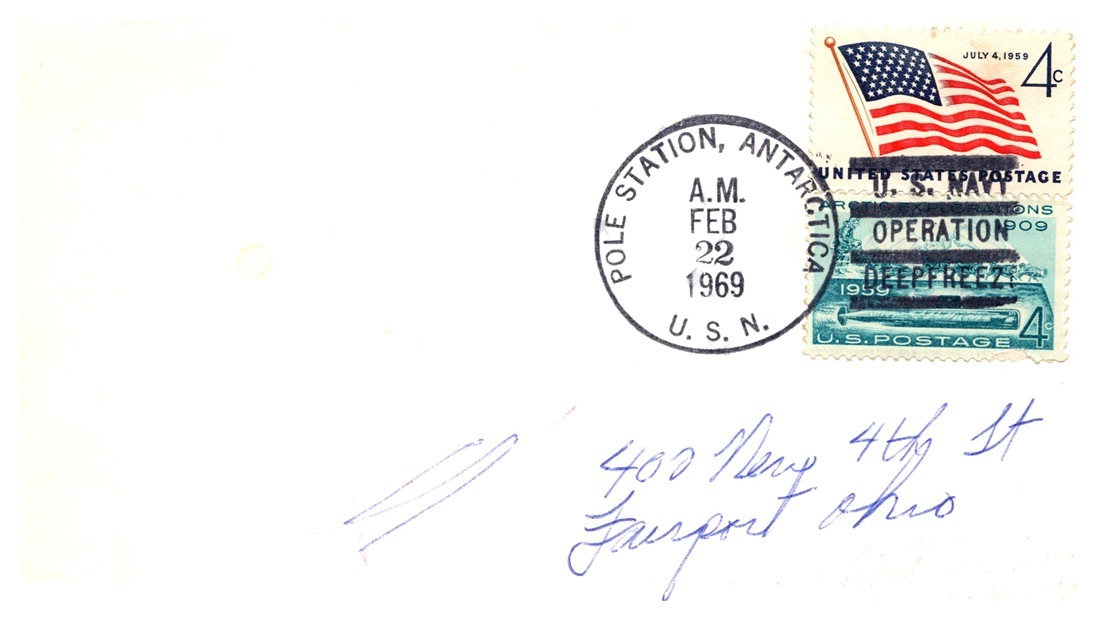 JULY 4, 1959 4c
UNITED STATES POSTAGE
ARCTIC EXPLORATIONS
1909
1959
4c
U.S. POSTAGE
POLE STATION, ANTARCTICA
A.M.
FEB
22
1969
U. S. N.
U. S. NAVY
OPERATION
DEEPFREEZE
400 New 4th St
Fairport Ohio